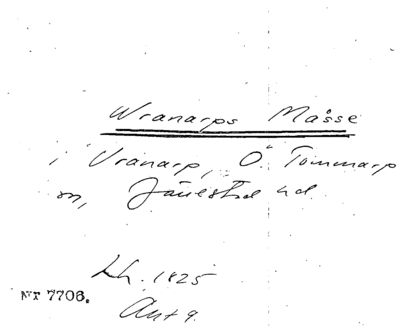 Wranarps Måsse
i Vranarp, Ö. Tommarp
sn, Järrestad hd.
Lh. 1825
Nr 7706.
Ant 9.